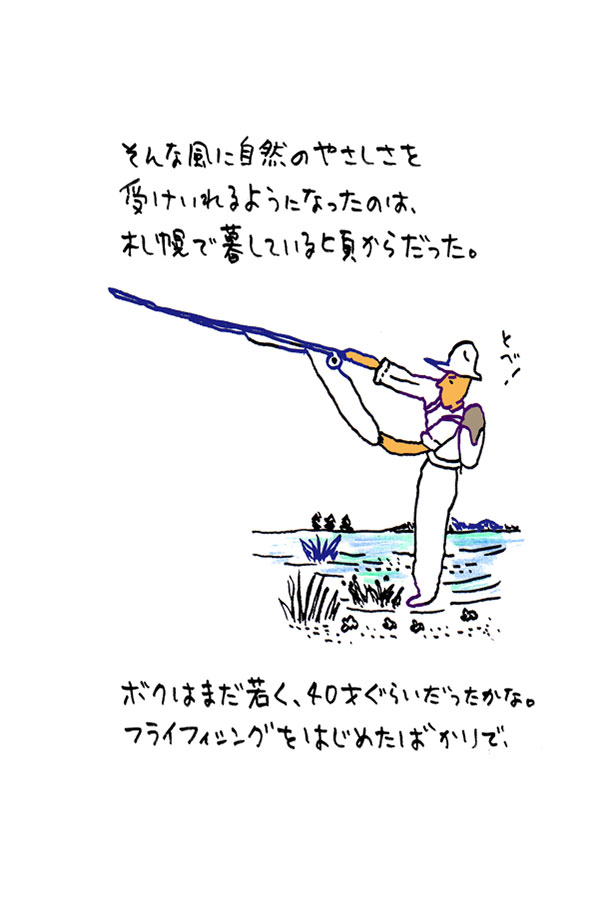 そんな風に自然のやさしさを
受けいれるようになったのは、
札幌で暮している頃からだった。
とべ!
ボクはまだ若く、40才ぐらいだったかな。
フライフィシングをはじめたばかりで、